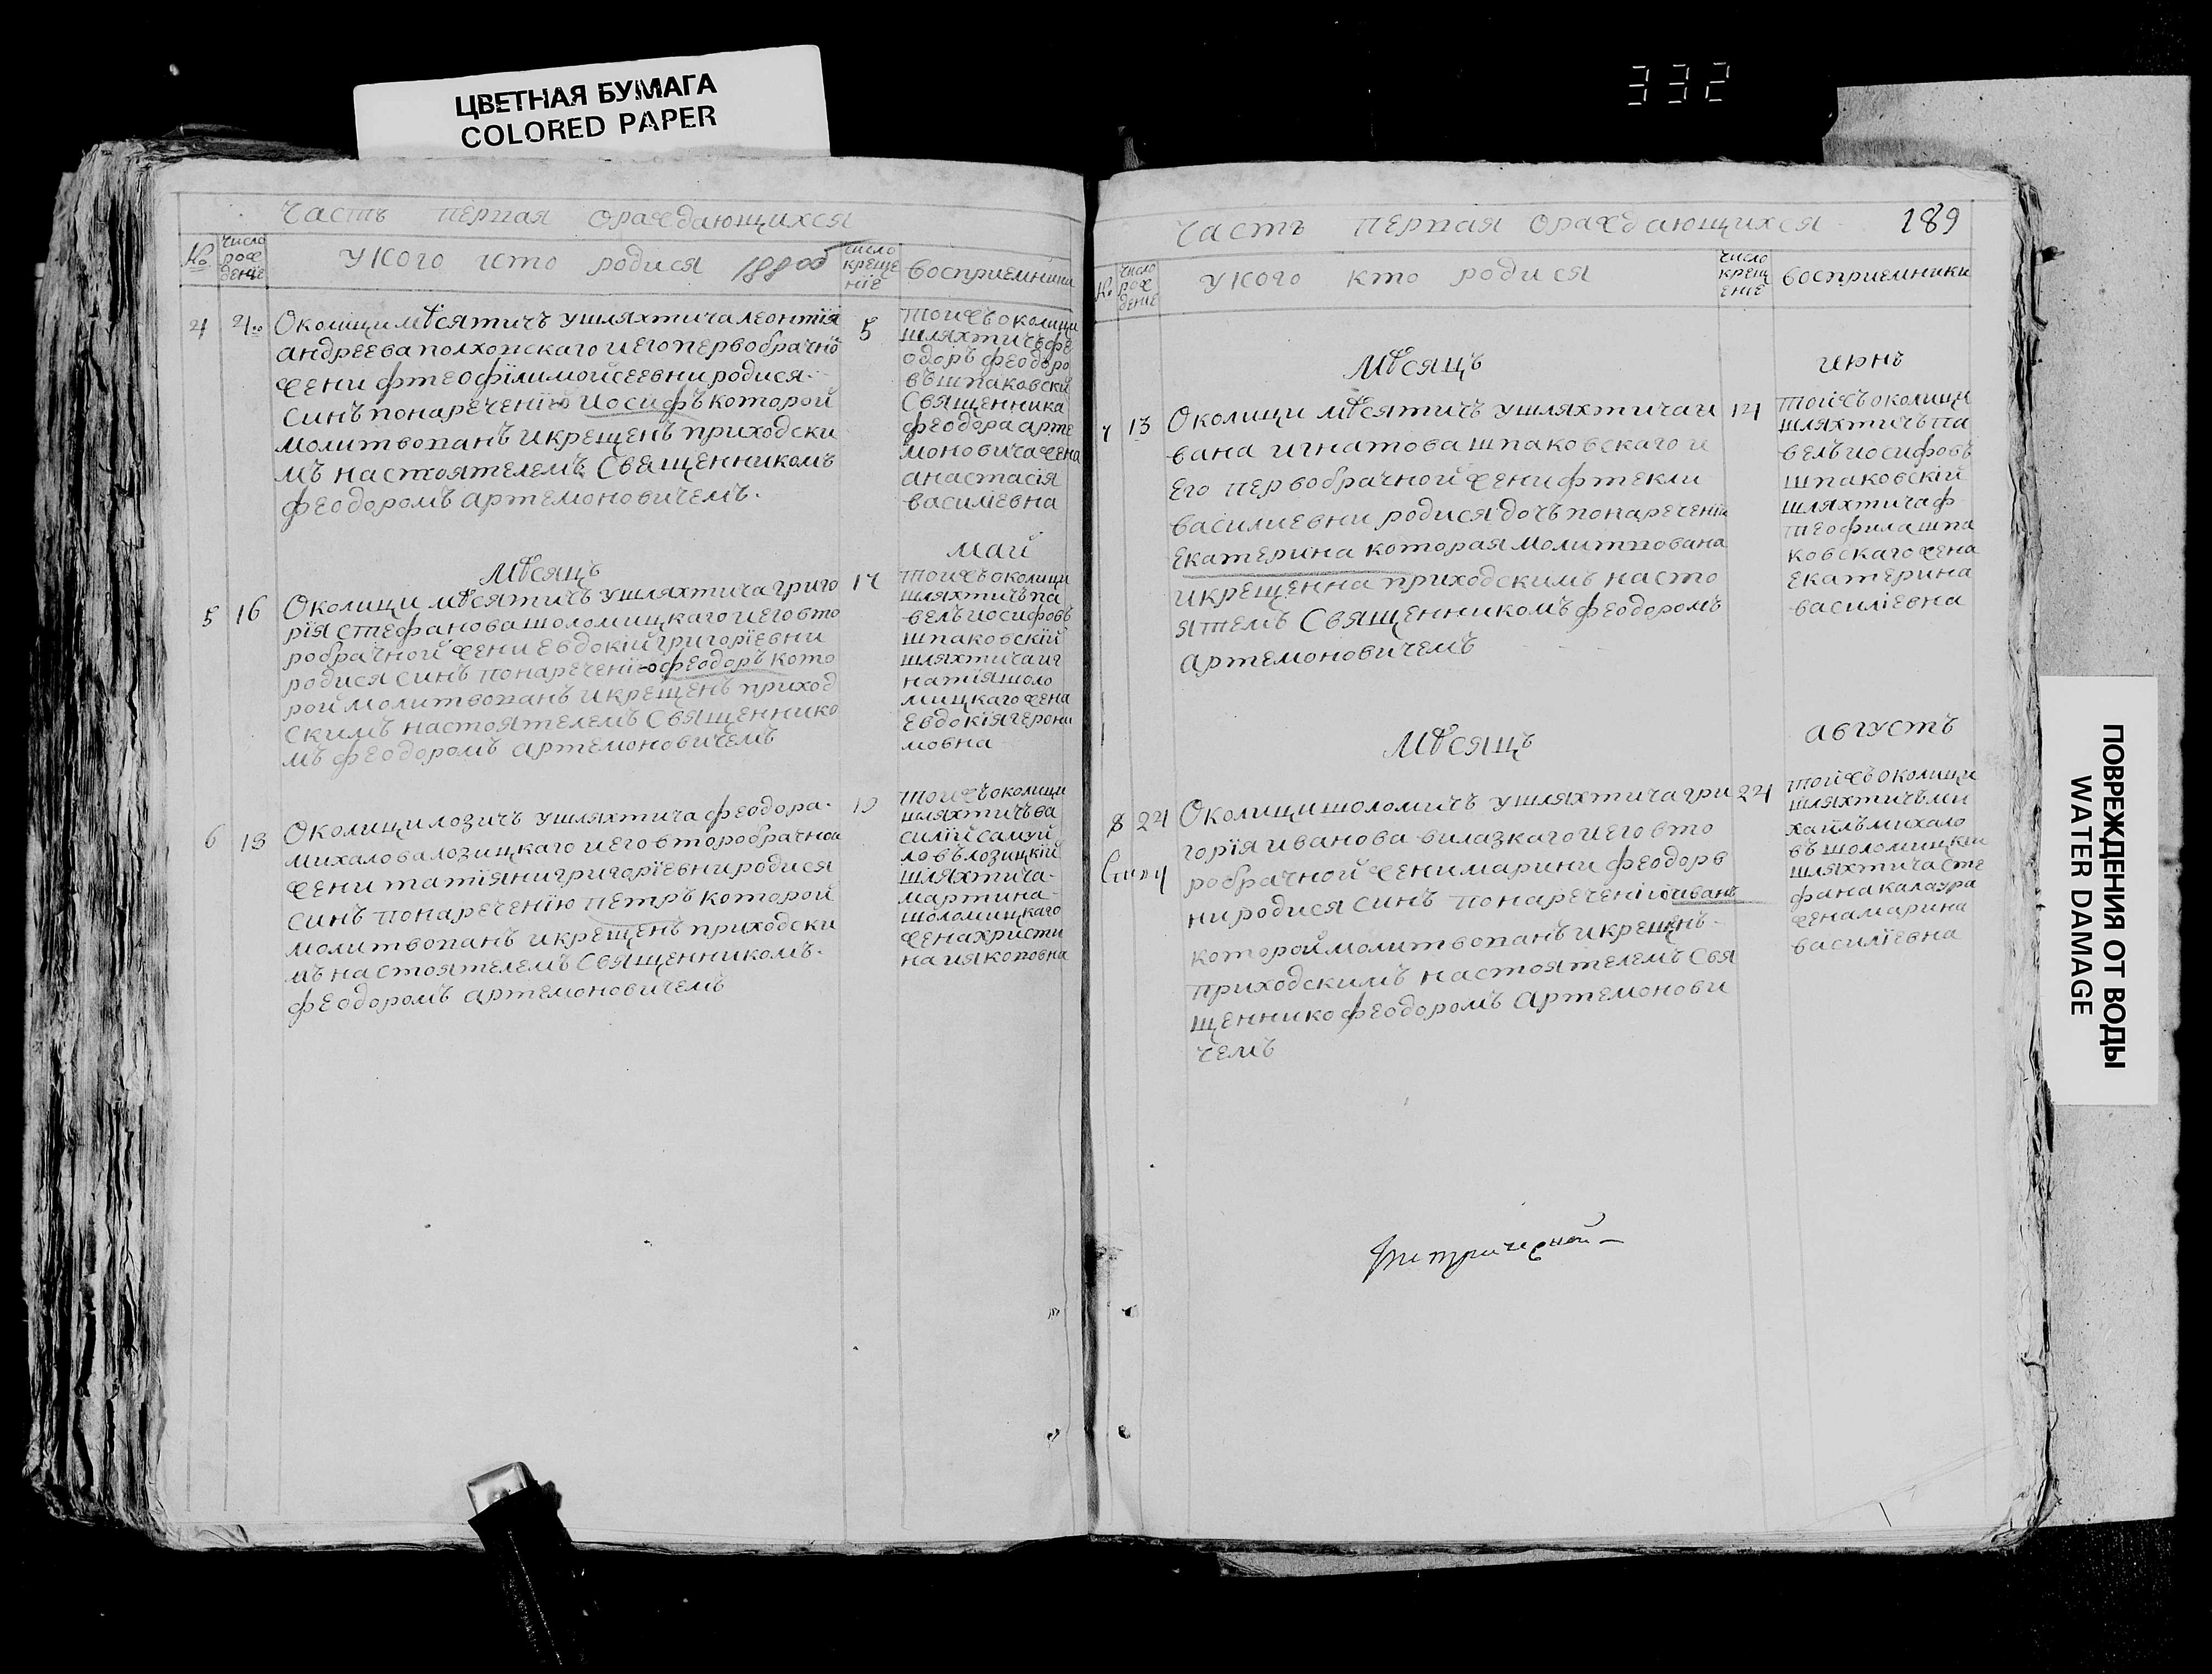 ЦВЕТНАЯ БУМАГА
COLORED PAPER
332
Часть первая ораждающихся
№
число рождение
У кого кто родися
число крещение
восприемники
4
4
5
Околици мѣсятичъ ушляхтича леонтія
андреева полхопскаго и его первобрачно
жени фтеофіли мойсеевни родися
синъ понаречению Иосифъ которой
молитвопанъ и крещенъ приходски
мъ настоятелемъ Священникомъ
феодоромъ артемоновичемъ.
тойжъ околици
шляхтичъ фе
одоръ феодоро
въ шпаковски
Священника
феодора арте
моновича жена
анастасія
василіевна
Мѣсяцъ
май
5
16
17
Околици мѣсятичъ ушляхтича григо
рія стефанова шоломицкаго и его вто
робрачной жени Евдокій григоріевни
родися синъ понаречению феодоръ кото
рой молитвопанъ и крещенъ приход
скимъ настоятелемъ Священнико
мъ феодоромъ артемоновичемъ
тойжъ околици
шляхтичъ па
велъ иосифовъ
шпаковскій
шляхтича иг
натія шоло
мицкаго жена
Евдокія герони
мовна
6
Околици лозичъ ушляхтича феодора
михалова лозицкаго и его второбрачной
жени татіяни григоріевни родися
синъ понаречению петръ которой
молитвопанъ и крещенъ приходски
мъ настоятелемъ Священникомъ
феодоромъ артемоновичемъ
тойжъ околици
шляхтичъ ва
силій самуй
ловъ лозицкій
шляхтича
мартина
шоломицкаго
жена христи
на ияковна
Часть первая ораждающихся
189
№
число рождение
У кого кто родися
число крещение
восприемники
Мѣсяцъ
июнь
7
13
14
Околици мѣсятичъ ушляхтича и
вана игнатова шпаковскаго и
его первобрачной жени фтекли
василиевни родися дочъ понаречению
Екатерина которая молитпована
и крещенна приходскимъ насто
ятелемъ Священникомъ феодоромъ
артемоновичемъ
тойжъ околици
шляхтичъ па
велъ иосифовъ
шпаковскій
шляхтича ф
теофила шпа
ковскаго жена
Екатерина
василіевна
Мѣсяцъ
августъ
8
24
24
Околици шоломичъ ушляхтича гри
горія иванова вилазкаго и его вто
робрачной жени марини феодорв
ни родися синъ понаречению иванъ
которой молитвопанъ и крещенъ
приходскимъ настоятелемъ Свя
щеннико феодоромъ Артемонови
чемъ
тойжъ околици
шляхтичъ ми
хаилъ михало
въ шоломицкій
шляхтича сте
фана калаура
жена марина
василіевна
ПОВРЕЖДЕНИЯ ОТ ВОДЫ
WATER DAMAGE